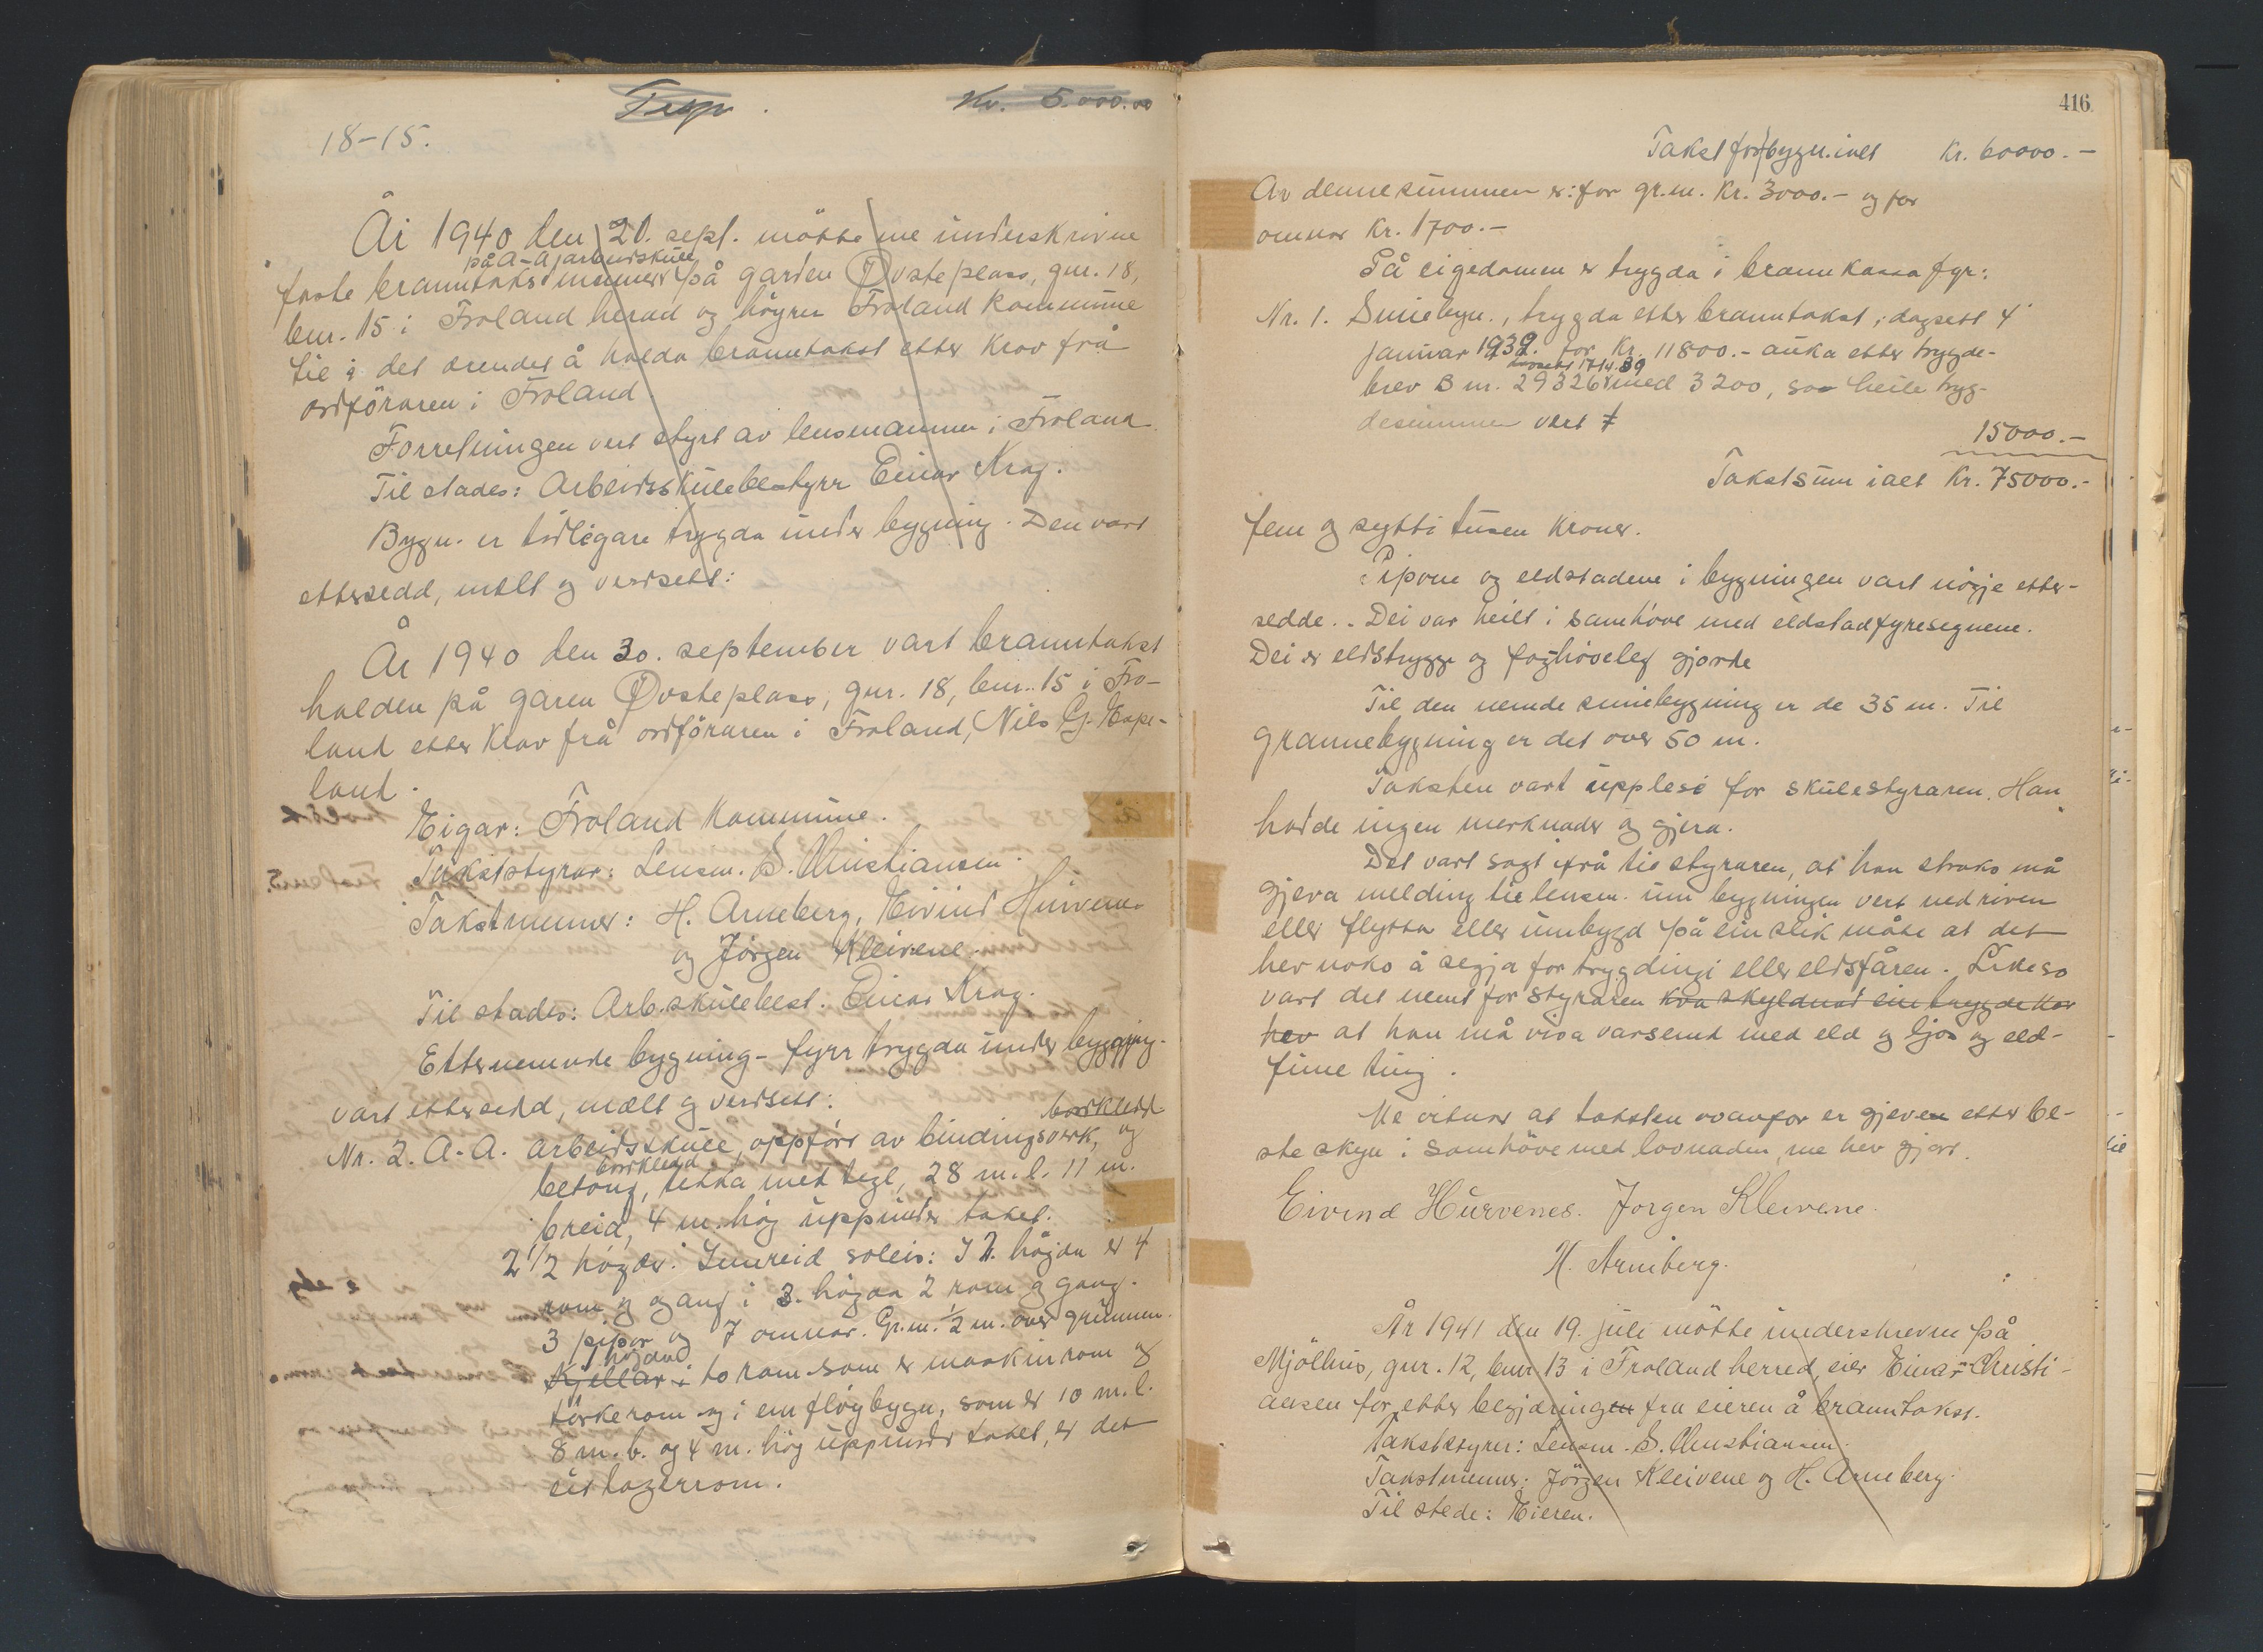 Kr. 5.000.00
18-15.
År 1940 den 20. sept. mötte me underskrivne
på A-A arbeidskule
faste branntakstmenner på garden Øvsteplass, gnr. 18,
bnr. 15 i Froland herad og höyrer Froland kommune
til i det ærendet å halda branntakst etter krav frå
ordföraren i Froland.
Forretningen vert styrt av lensmannen i Froland.
Til stades: Arbeidsskulebestyrer Einar Krag.
Bygn. er tidligare trygda under bygning. Den vart
ettersedd, mælt og verdsett:
År 1940 den 30. september vart branntakst
halden på garen Øvsteplass, gnr. 18, bnr. 15 i Fro-
land etter krav frå ordföraren i Froland, Nils G. Mope-
land.
Eigar: Froland kommune.
Takststyrar: Lensm. S. Christiansen.
Takstmenner: H. Arneberg, Eivind Hurvenes
og Jörgen Kleivene.
Til stades: Arb.skulebest. Einar Krag.
Etternemnde bygning - fyrr trygda under bygging -
vart ettersedd, mælt og verdsett:
bordkledd
Nr. 2. A.-A. arbeidsskule, oppfört av bindingsverk, og
bordkledd
betong, tekka med tegl, 28 m. l. 11 m.
breid, 4 m. hög uppunder taket.
2 1/2 högder. Innreid soleis: I 2. högda er 4
rom og gang i 3. högda 2 rom og gang.
3 pipor og 7 omnar. Gr.m. 1/2 m. over grunnen.
I högand
Kjellar i to rom som er maskinrom og
törkerom og i em flöybygn, som er 10 m. l.
8 m. b. og 4 m. hög uppunder taket, er det
eit lagerrom.
416.
Takst for bygn. ialt Kr. 60000.-
Av denne summen er: for gr.m. Kr. 3000.- og for
omnar Kr. 1700.-
På eigedomen er trygda i brannkassa fyr:
Nr. 1. Smiebygn., trygda etter branntakst, dagsett 4
januar 1939. for Kr. 11800.- auka etter trygde-
17/4.39
brev B nr. 29326 med 3200, so heile tryg-
desummen vert
15000.-
Takstsum ialt Kr. 75000.-
fem og sytti tusen kroner.
Pipone og eldstadene i bygningen vart nögje etter-
sedde. Dei var heilt i samhöve med eldstadfyresegnene.
Dei er eldstrygge og faghöveleg gjorde
Til den nemde smiebygning er de 35 m. Til
grannebygning er det over 50 m.
Taksten vart upplesi for skulestyraren. Han
hadde ingen merknader og gjera.
Det vart sagt ifrå til styraren, at han straks må
gjeva melding til lensm. um bygningen vert nedriven
eller flytta eller umbygd på ein slik måte at det
hev noko å segja for trygdingi eller eldsfåren. Likeso
vart det nemt for styraren kva skyldnat ein trygdettar
hev at han må visa varsemd med eld og ljos og eld-
fime ting.
Me vitnar at taksten ovanfor er gjeven etter be-
ste skyn i samhöve med lovnaden, me hev gjort.
Eivind Hurvenes. Jorgen Kleivene.
H. Arneberg.
År 1941 den 19. juli mötte underskrevne på
Mjölhus, gnr. 12, bnr 13 i Froland herred, eier Einar Christi-
ansen for etter begjæring fra eieren å branntakst.
Takstbestyrer: Lensm. S. Christiansen.
Takstmenner: Jörgen Kleivene og H. Arneberg.
Til stede: Eieren.